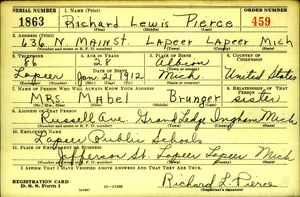 SERIAL NUMBER 1. NAME (Print) ORDER NUMBER
1863 Richard Lewis Pierce 459
2. ADDRESS (Print)
636 N Main St. Lapeer Lapeer Mich
3. TELEPHONE 4. AGE IN YEARS 5. PLACE OF BIRTH 6. COUNTRY OF CITIZENSHIP
86 28 Albion
Lapeer Jan. 2 1912 Mich United States
7. NAME OF PERSON WHO WILL ALWAYS KNOW YOUR ADDRESS 8. RELATIONSHIP OF THAT PERSON
Mrs Mabel Brunger sister
9. ADDRESS OF THAT PERSON
Russell Ave. Grand Ledge Ingham Mich
10. EMPLOYER'S NAME
Lapeer Public Schools
11. PLACE OF EMPLOYMENT OR BUSINESS
Jefferson St. Lapeer Lapeer Mich
I AFFIRM THAT I HAVE VERIFIED ABOVE ANSWERS AND THAT THEY ARE TRUE.
REGISTRATION CARD
D. S. S. Form 1
Richard L. Pierce